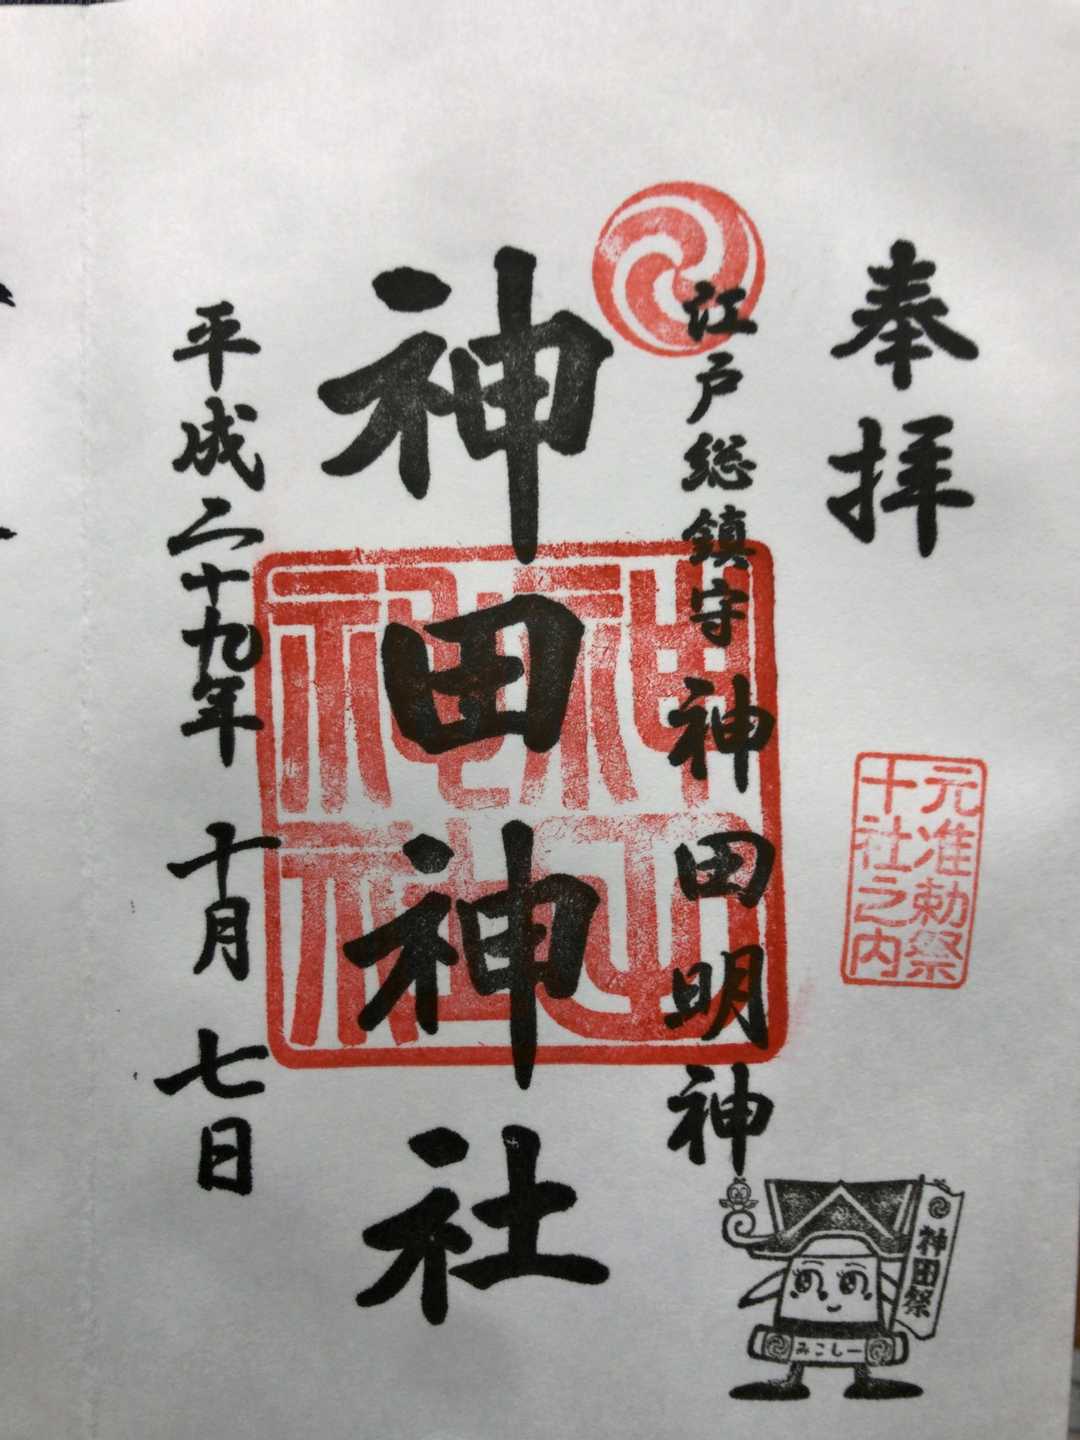 奉拝
元准勅祭
十社之内
江戸総鎮守 神田明神
神田神社
神田
神社
平成二十九年 十月 七日
神田祭
みこしー